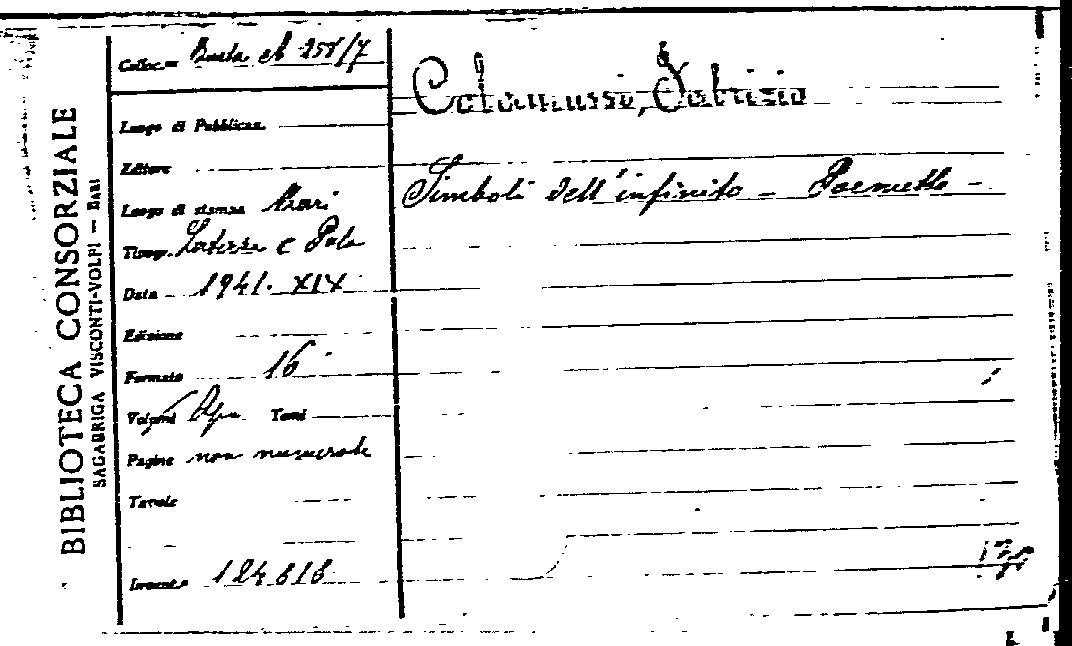 BIBLIOTECA CONSORZIALE
SAGARRIGA VISCONTI-VOLPI — BARI
Colloc.ne Busta 258/7
Luogo di Pubblicaz.
Editore
Luogo di stampa Bari
Tipogr. Laterza e Polo
Data 1941. XIX
Edizione
Formato 16°
Volumi Opu Tomi
Pagine non numerate
Tavole
Invent.o 124818
Calamusso, Fabrizio
Simboli dell'infinito — Poemetto —